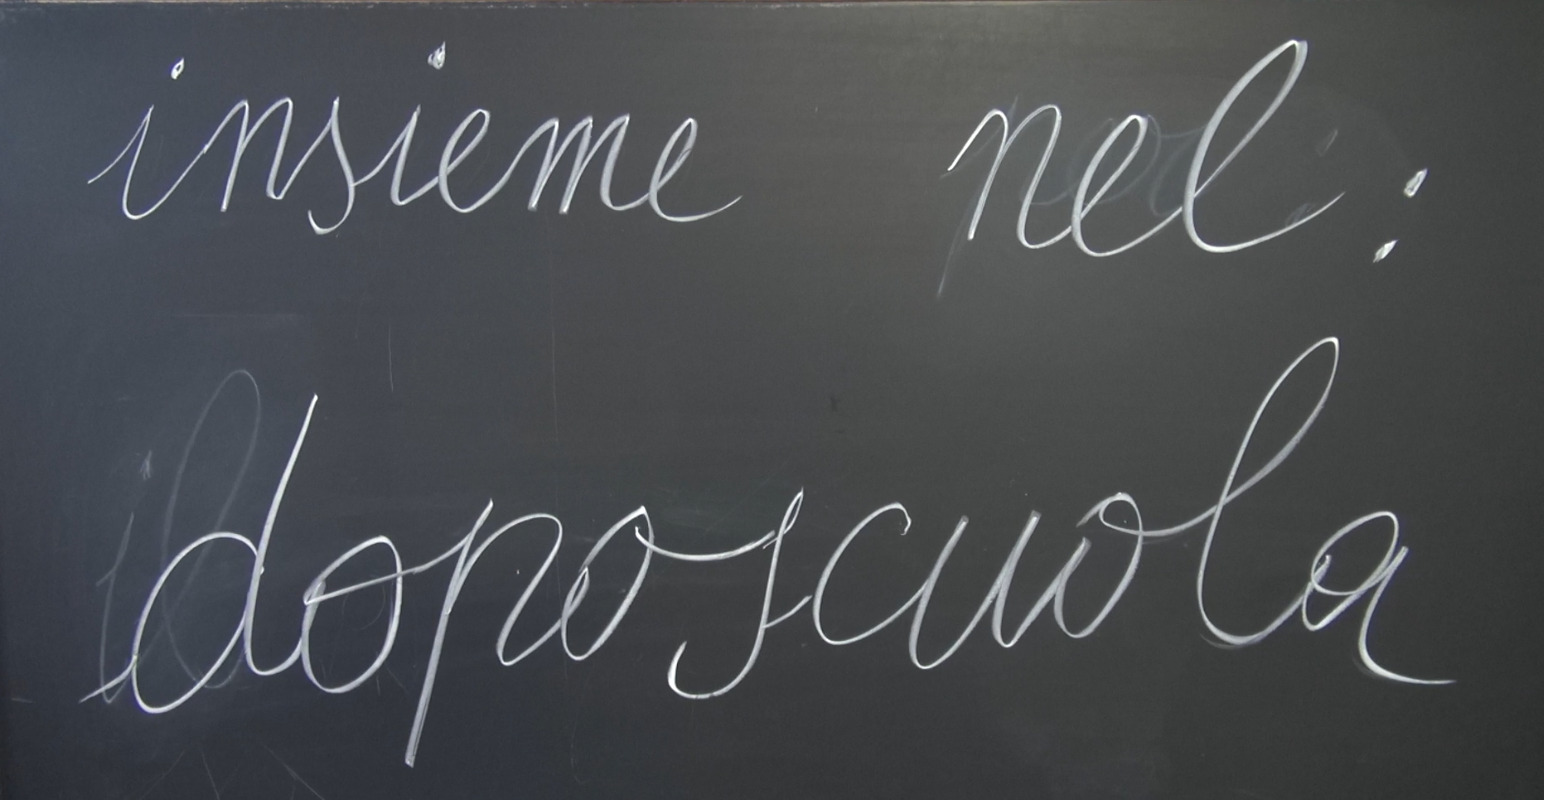 insieme nel:
doposcuola